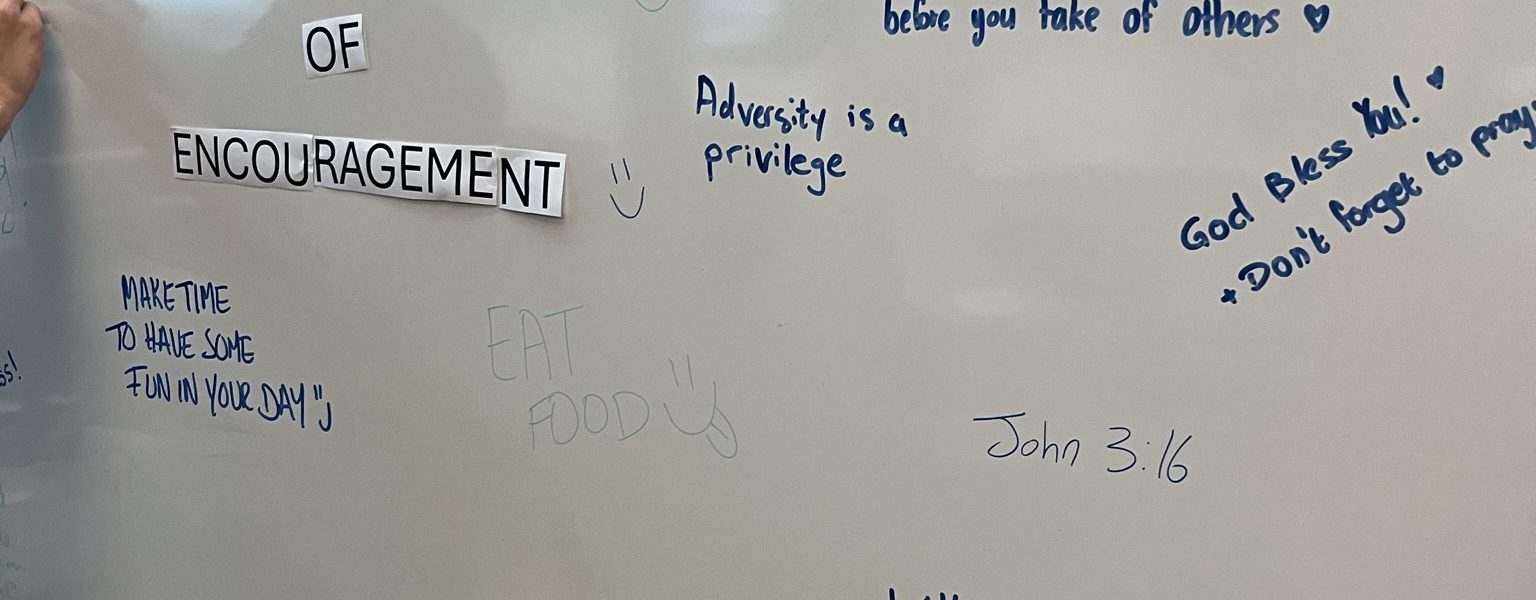 OF
ENCOURAGEMENT
before you take of others
Adversity is a
privilege
God Bless You!
+ Don't forget to pray
MAKE TIME
TO HAVE SOME
FUN IN YOUR DAY
EAT
FOOD
John 3:16